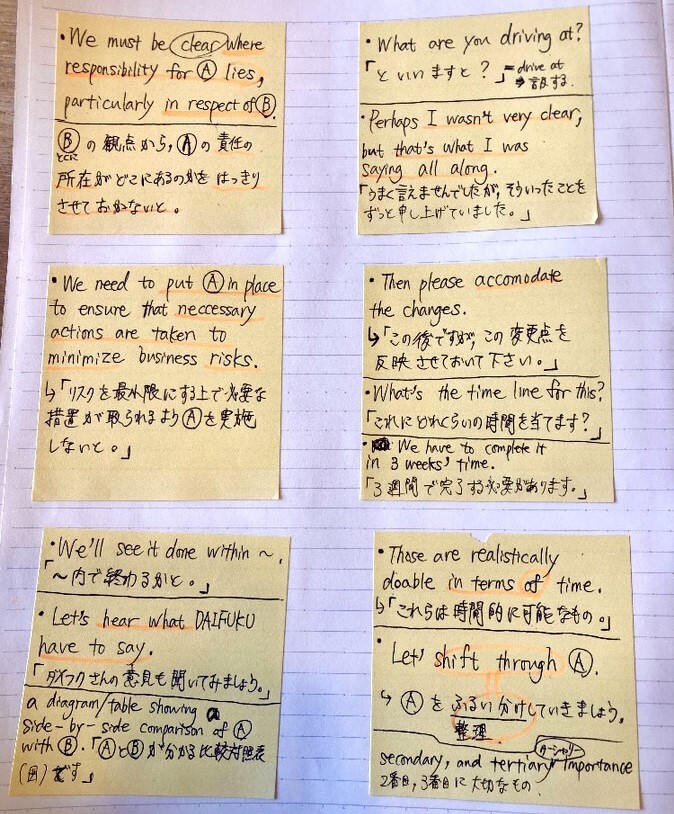 ・We must be clear where
responsibility for Ⓐ lies,
particularly in respect of Ⓑ.
Ⓑの観点から,Ⓐの責任の
とくに
所在がどこにあるのかをはっきり
させておかないと。
・What are you driving at?
「といいますと?」=drive at
⇒意図する。
・Perhaps I wasn't very clear,
but that's what I was
saying all along.
「うまく言えませんでしたが,そういったことを
ずっと申し上げていました。」
・We need to put Ⓐ in place
to ensure that neccessary
actions are taken to
minimize business risks.
↳「リスクを最小限にする上で必要な
措置が取られるようⒶを実施
しないと。」
・Then please accomodate
the changes.
↳「この後ですが,この変更点を
反映させておいて下さい。」
・What's the time line for this?
「これにどれくらいの時間を当てます?」
・We have to complete it
in 3 weeks' time.
「3週間で完了する必要があります。」
・We'll see it done within ~.
「~内で終わるかと。」
・Let's hear what DAIFUKU
have to say.
「ダイフクさんの意見も聞いてみましょう。」
a diagram/table showing a
side-by-side comparison of Ⓐ
with Ⓑ.「ⒶとⒷが分かる比較対照表
(図)です」
・Those are realistically
doable in terms of time.
↳「これらは時間的に可能なもの。」
・Let's shift through Ⓐ.
↳Ⓐをふるい分けしていきましょう。
整理
ターシャリー
secondary, and tertiary importance
2番目,3番目に大切なもの.